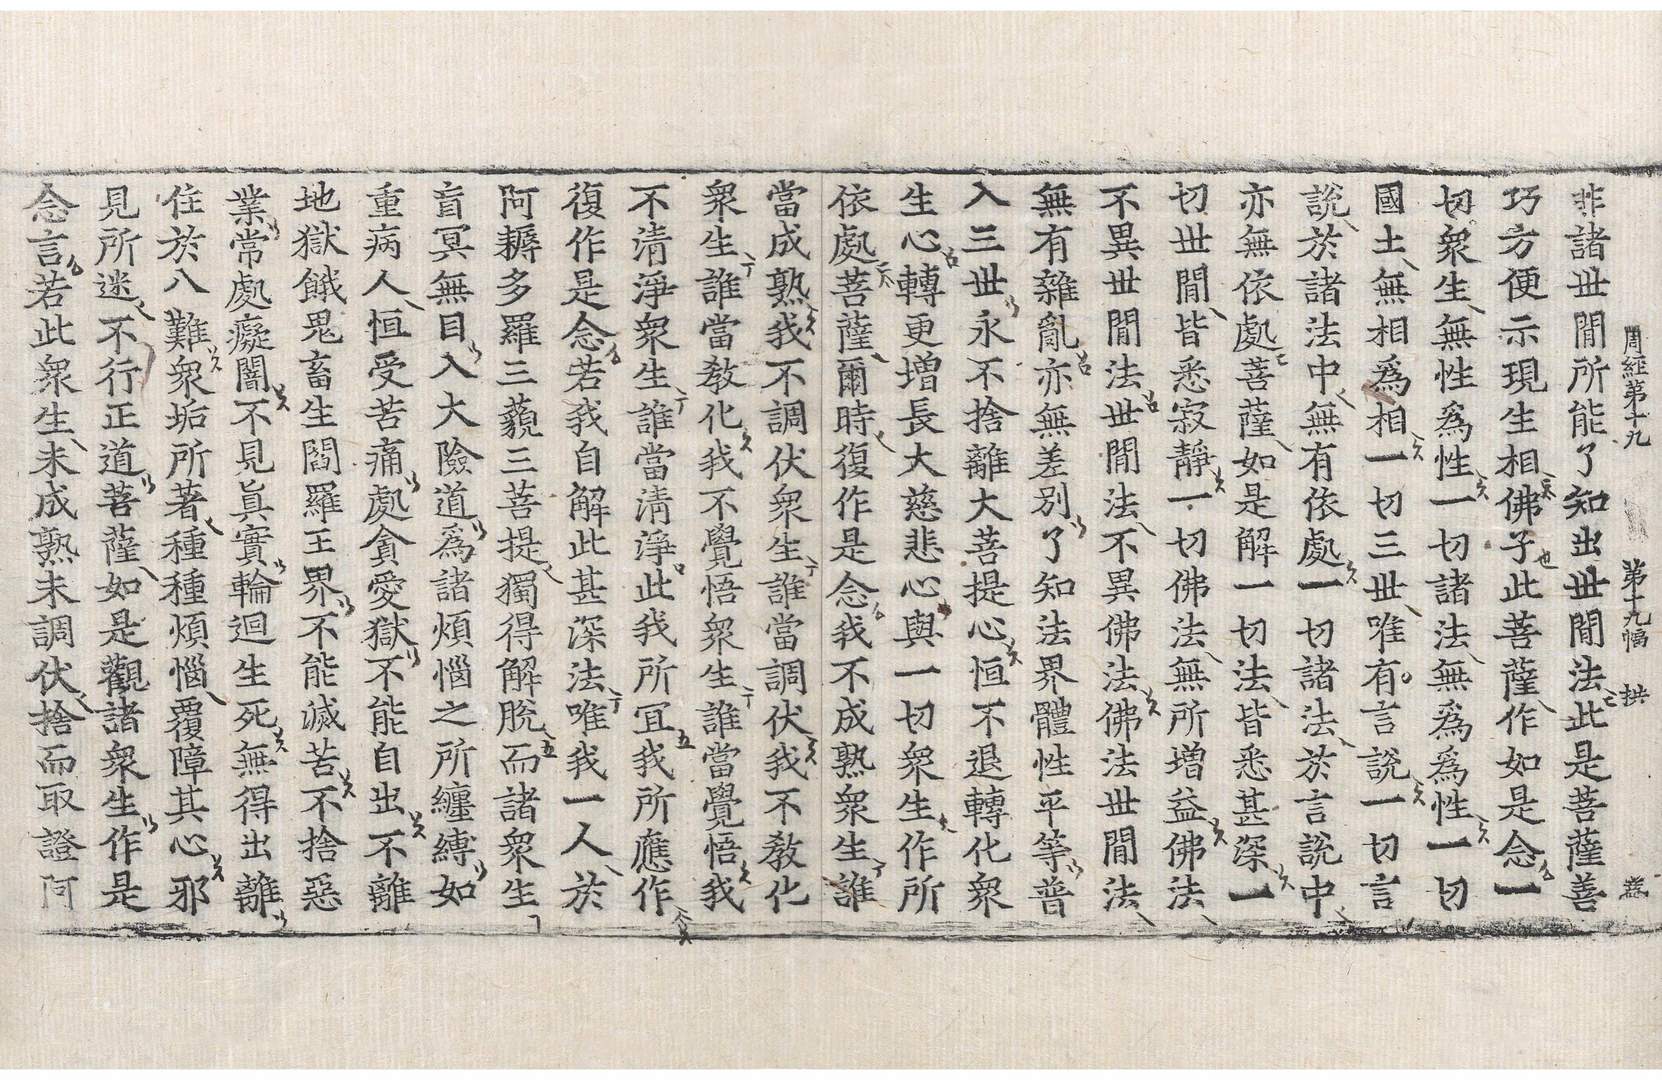 周經第十九　第十九幅　拱
非諸世間所能了知出世間法此是菩薩善
巧方便示現生相佛子此菩薩作如是念一
切衆生無性爲性一切諸法無爲爲性一切
國土無相爲相一切三世唯有言說一切言
說於諸法中無有依處一切諸法於言說中
亦無依處菩薩如是解一切法皆悉甚深一
切世間皆悉寂靜一切佛法無所增益佛法
不異世間法世間法不異佛法佛法世間法
無有雜亂亦無差別了知法界體性平等普
入三世永不捨離大菩提心恒不退轉化衆
生心轉更增長大慈悲心與一切衆生作所
依處菩薩爾時復作是念我不成熟衆生誰
當成熟我不調伏衆生誰當調伏我不教化
衆生誰當教化我不覺悟衆生誰當覺悟我
不清淨衆生誰當清淨此我所宜我所應作
復作是念若我自解此甚深法唯我一人於
阿耨多羅三藐三菩提獨得解脫而諸衆生
盲冥無目入大險道爲諸煩惱之所纏縛如
重病人恒受苦痛處貪愛獄不能自出不離
地獄餓鬼畜生閻羅王界不能滅苦不捨惡
業常處癡闇不見眞實輪迴生死無得出離
住於八難衆垢所著種種煩惱覆障其心邪
見所迷不行正道菩薩如是觀諸衆生作是
念言若此衆生未成熟未調伏捨而取證阿